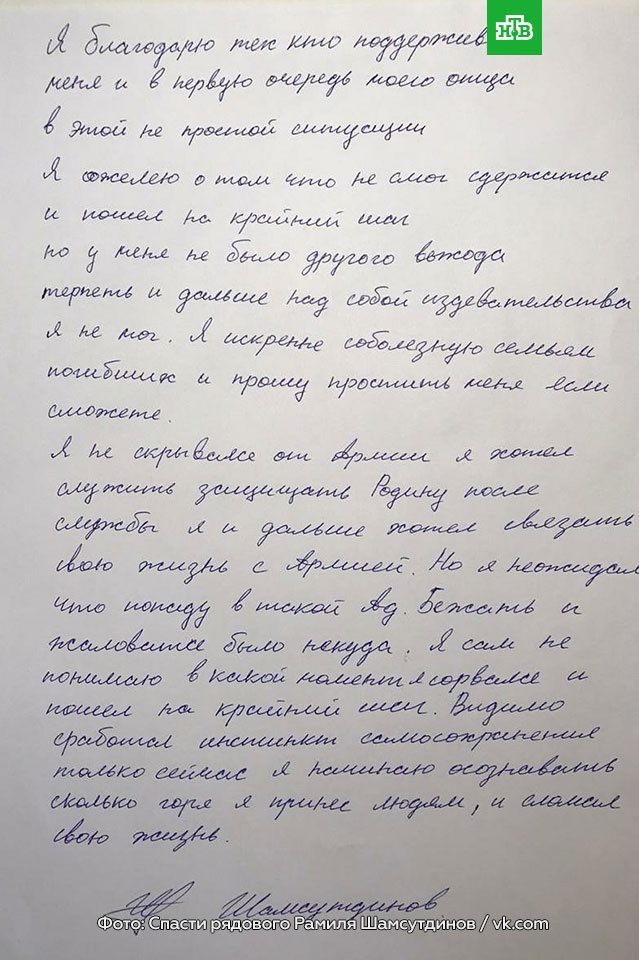 НТВ
Я благодарю тех кто поддержив
меня и в первую очередь моего отца
в этой не простой ситуации
Я сожелею о том что не смог сдержатся
и пошел на крайний шаг
но у меня не было другого выхода
терпеть и дальше над собой издевательства
я не мог. Я искренне соболезную семьям
погибших и прошу простить меня если
сможете.
Я не скрывался от Армии я хотел
служить защищать Родину после
службы я и дальше хотел связать
свою жизнь с Армией. Но я неожидал
что попаду в такой Ад. Бежать и
жаловатся было некуда. Я сам не
понимаю в какой момент я сорвался и
пошел на крайний шаг. Видимо
сработал инстинкт самосохранения
только сейчас я начинаю осознавать
сколько горя я принес людям, и сломал
свою жизнь.
Шамсутдинов
Фото: Спасти рядового Рамиля Шамсутдинов / vk.com